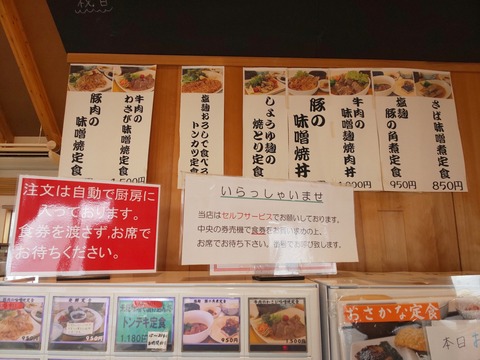 豚肉の
味噌焼定食
牛肉の
わさび味噌焼定食
塩麹おろしで食べる
トンカツ定食
しょうゆ麹の
焼とり定食
豚の
味噌焼丼
牛肉の
味噌麹焼肉丼
塩麹
豚の角煮定食
950円
さば味噌煮定食
850円
注文は自動で厨房に
入っております。
食券を渡さず、お席で
お待ちください。
いらっしゃいませ
当店はセルフサービスでお願いしております。
中央の券売機で食券をお買い求めの上、
お席でお待ち下さい。番号でお呼び致します。
トンテキ定食
1180円
950円
おさかな定食
本日